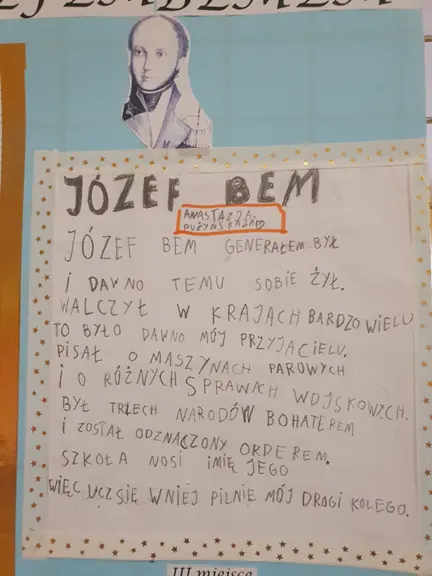 JÓZEF BEM
ANASTAZJA
JÓZEF BEM GENERAŁEM BYŁ
I DAWNO TEMU SOBIE ŻYŁ.
WALCZYŁ W KRAJACH BARDZO WIELU
TO BYŁO DAWNO MÓJ PRZYJACIELU.
PISAŁ O MASZYNACH PAROWYCH
I O RÓŻNYCH SPRAWACH WOJSKOWYCH.
BYŁ TRZECH NARODÓW BOHATEREM
I ZOSTAŁ ODZNACZONY ORDEREM.
SZKOŁA NOSI IMIĘ JEGO
WIĘC UCZ SIĘ W NIEJ PILNIE MÓJ DROGI KOLEGO.
III miejsce